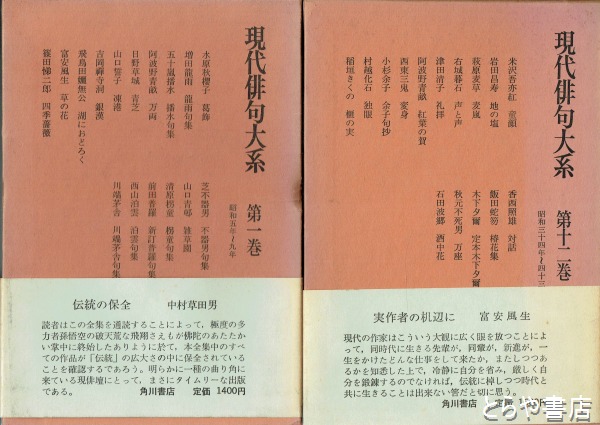 現代俳句大系 第一巻
昭和五年～九年
水原秋櫻子 葛飾
増田龍雨 龍雨句集
五十嵐播水 播水句集
阿波野青畝 万両
日野草城 青芝
山口誓子 凍港
吉岡禅寺洞 銀漢
飛鳥田孋無公 湖におどろく
富安風生 草の花
篠田悌二郎 四季薔薇
芝不器男 不器男句集
山口青邨 雑草園
清原枴童 枴童句集
前田普羅 新訂普羅句集
西山泊雲 泊雲句集
川端茅舎 川端茅舎句集
伝統の保全 中村草田男
読者はこの全集を通読することによって，極度の多
力者孫悟空の破天荒な飛翔さえもが佛陀のあたたか
い掌中に終始したありように於て，本全集中のすべ
ての作品が「伝統」の広大さの中に保全されている
ことを確認するであろう。明らかに一種の曲り角に
来ている現俳壇にとって，まさにタイムリーな出版
である。
角川書店 定価 1400円
現代俳句大系 第十二巻
昭和三十四年～四十三
米沢吾亦紅 童顔
岩田昌寿 地の塩
萩原麦草 麦嵐
右城暮石 声と声
津田清子 礼拝
阿波野青畝 紅葉の賀
西東三鬼 変身
小杉余子 余子句抄
村越化石 独眼
稲垣きくの 榧の実
香西照雄 対話
飯田蛇笏 椿花集
木下夕爾 定本木下夕爾
秋元不死男 万座
石田波郷 酒中花
実作者の机辺に 富安風生
現代の作家はこういう大観に広く眼を放つことによ
って，同時代に生きる先輩が，同輩が，新進が，一
生をかけたどんな仕事をして来たか，またしつつあ
るかを知悉した上で，冷静に自分を省み，厳しく自
分を鍛錬するのでなければ，伝統に棹しつつ時代と
共に生きることは出来ない筈だと切に思う。
角川書店 定価 1400円
とらや書店